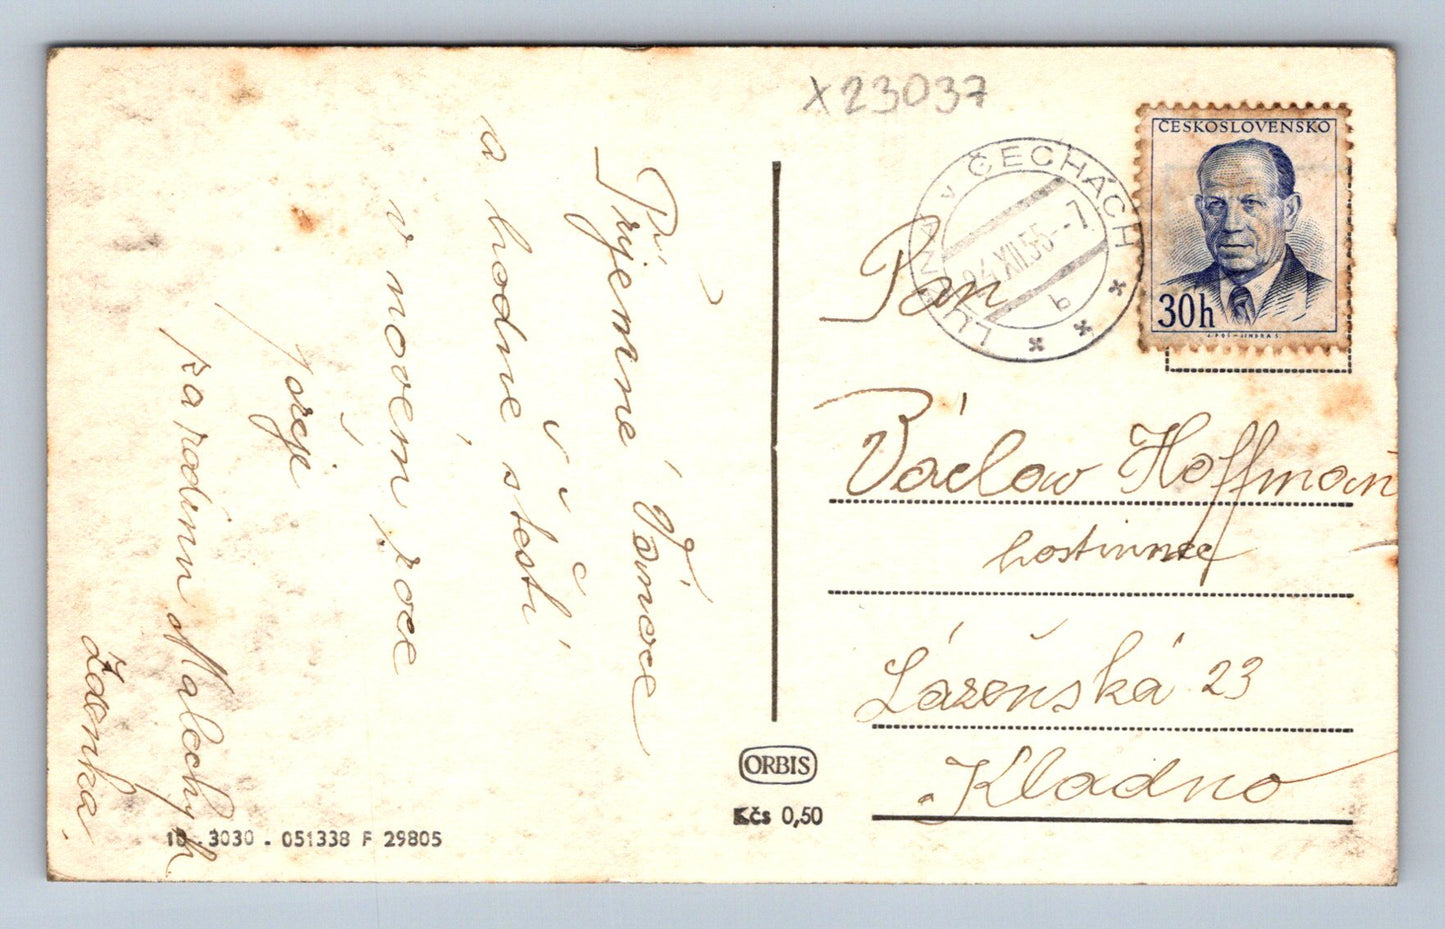 X23037
ČESKOSLOVENSKO
30h
LUNA V ČECHÁCH
24.XII.55--7
b
Příjemné Vánoce
a hodně štěstí
v novém roce
přeje
za rodinu Malechých
Zdenka.
Pan
Václav Hoffmann
hostinec
Lázeňská 23
Kladno
ORBIS
Kčs 0,50
10 - 3030 - 051338 F 29805